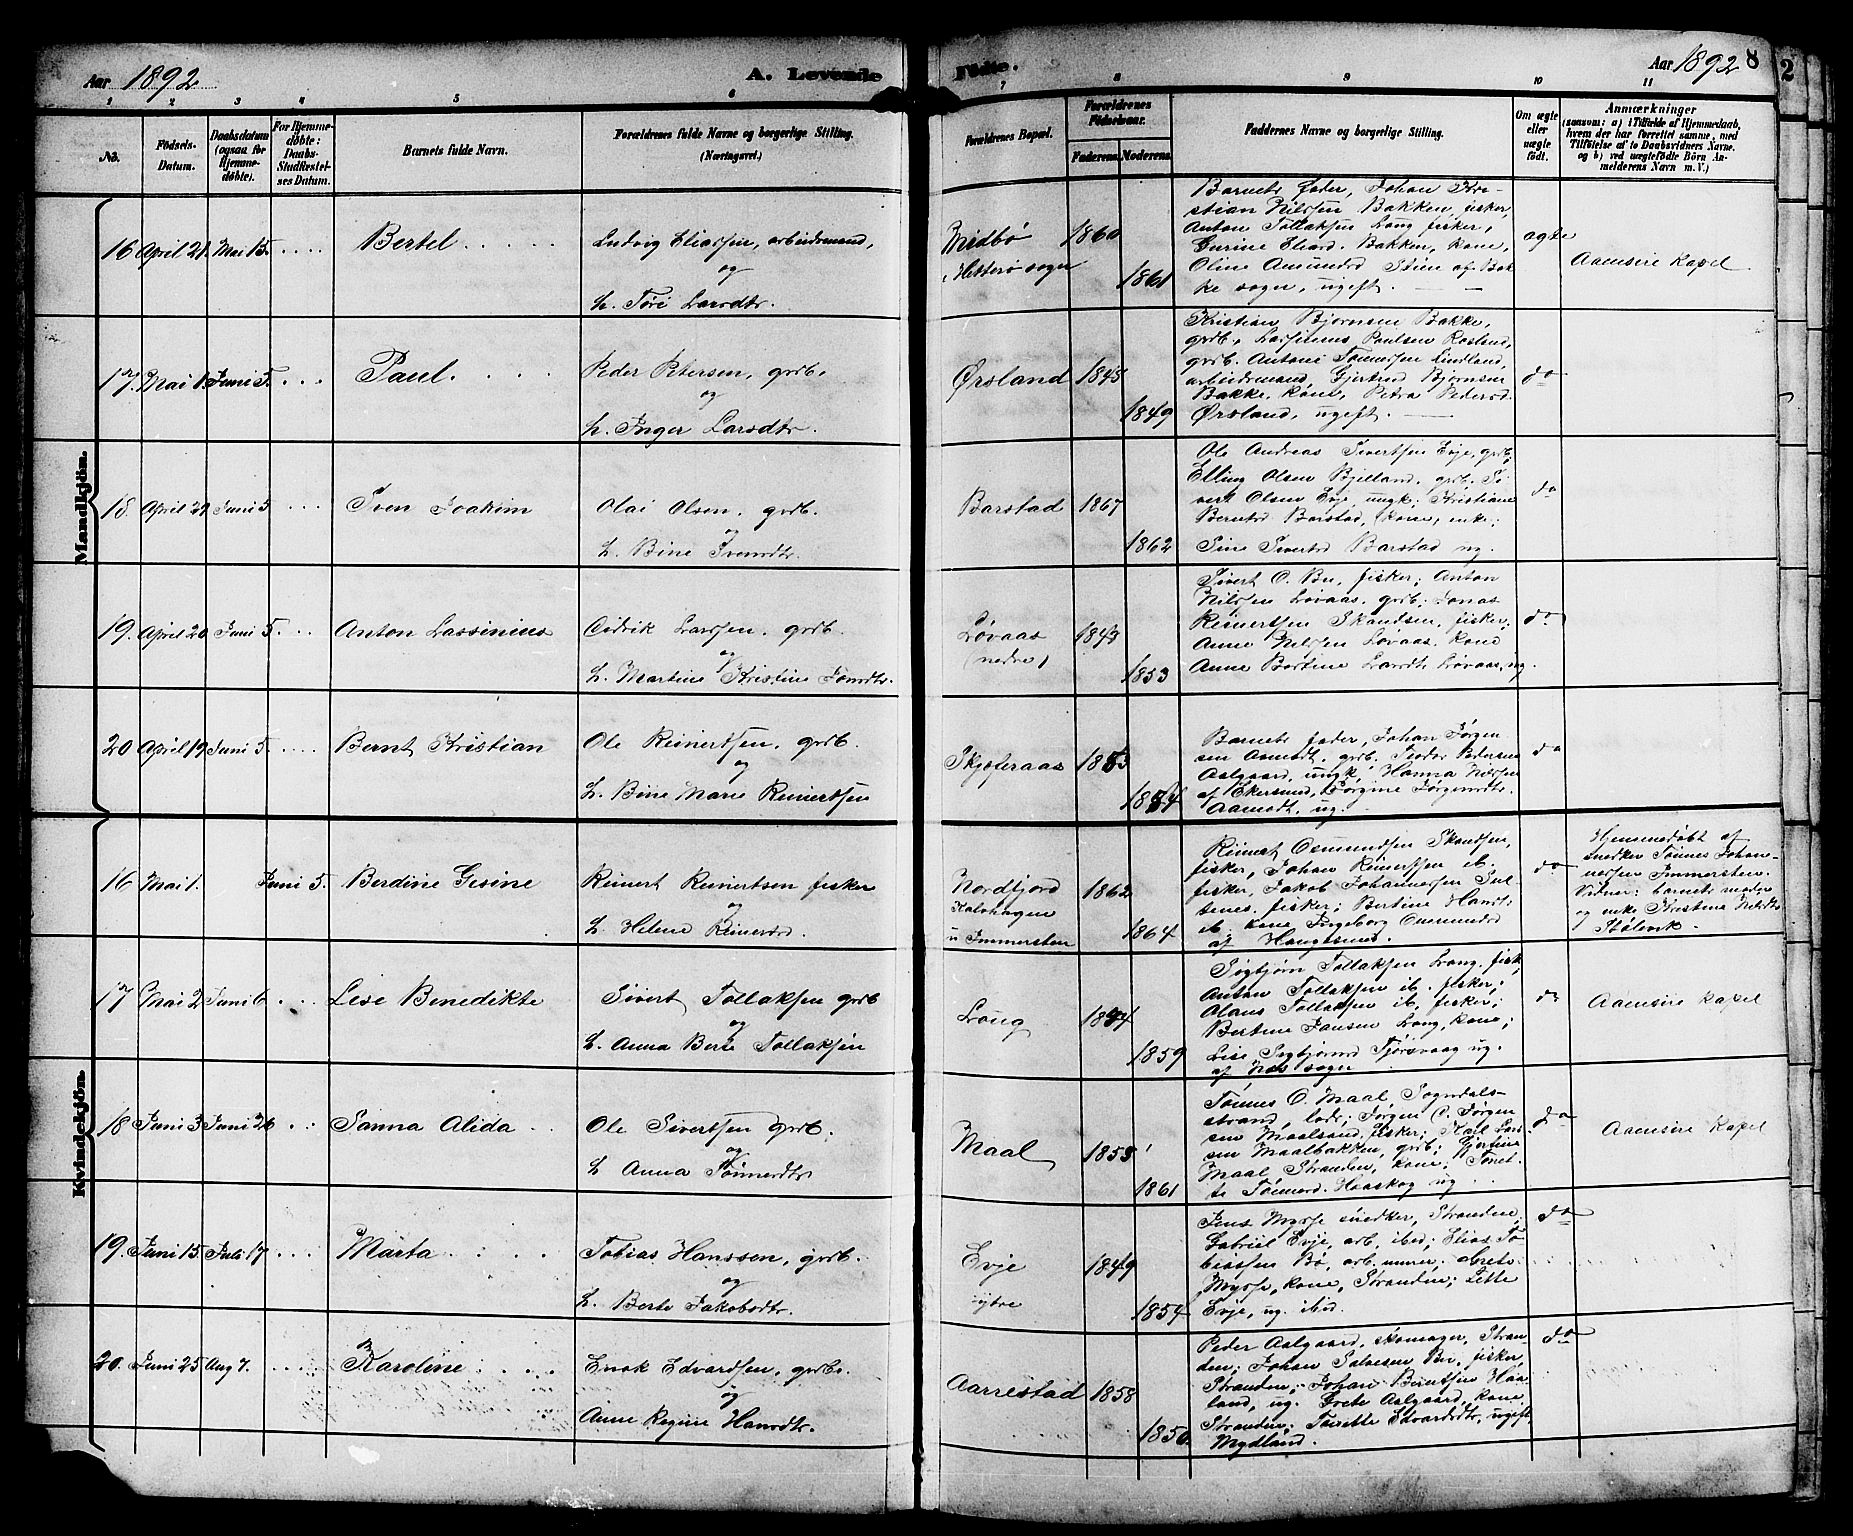 Aar 1892
A. Levende
Fødte.
Aar 1892
8
2
1 2 3 4 5 6 7 8 9 10 11
No.
Födsels-Datum.
Daabsdatum (ogsaa for Hjemme-döbte).
For Hjemme-döbte: Daabs-Stadfæstel-ses Datum.
Barnets fulde Navn.
Forældrenes fulde Navne og borgerlige Stilling. (Næringsvei.)
Forældrenes Bopæl.
Forældrenes Födselsaar.
Faderens. Moderens.
Faddernes Navne og borgerlige Stilling.
Om ægte eller uægte födt.
Anmærkninger
(saasom: a) i Tilfælde af Hjemmedaab, hvem der har forrettet samme, med Tilföielse af to Daabsvidners Navne, og b) ved uægtefödte Börn An-melderens Navn m.V.)
Mandkjön.
16 April 21. Mai 15. Bertel
Ludvig Eliassen, arbeidsmand,
og
h. Tøri Larsdtr.
Midbø
i Hitterø sogn
1860
1861
Barnets fader, Johan Kri-
stian Nilssen Bakken, fisker,
Anton Tollaksen Long fisker,
Gurine Eliasd. Bakken, kone,
Oline Amundsd Stien af Bak
ke sogn, ugift.
ægte
Aaensire kapel
17. Mai 1. Juni 5. Paul.
Peder Petersen, grdb.
og
h. Inger Larsdtr.
Ørsland 1845
1849
Kristian Bjørnsen Bakke,
grdb. Lassinius Paulsen Rostad,
grdb. Antoni Tønnessen Lindland,
arbeidsmand, Gjertrud Bjørnsen
Bakke, kone, Petra Pedersd.
Ørsland, ugift.
do
18. April 29 Juni 5 Sven Joakim
Olai Olsen, grdb.
og
h. Bine Svensdtr.
Barstad 1867
1862
Ole Andreas Sivertsen Evje, grdb,
Elling Olsen Bjelland, grdb. Si
vert Olsen Evje, ungk; Kristiane
Berntsd Barstad, kone, enke;
Sine Sivertsd Barstad ug.
do
19. April 20 Juni 5. Anton Lassinius
Cidrik Larssen, grdb.
og
h. Martine Kristine Tønnesdtr.
Løvaas
(nedre)
1843
1853
Sivert O. Bu, fisker; Anton
Nilssen Løvaas, grdb; Jonas
Reinertsen Skandsen, fisker;
Anne Nilssen Løvaas, kone
Anne Bertine Larsdt. Løvaas, ug.
do
20 April 19 Juni 5. Bernt Kristian
Ole Reinertsen, grdb.
og
h. Bine Marie Reinertsen
Skjøteraas 1853
1854
Barnets fader, Johan Jørgen
sen Aamodt, grdb. Teodor Pedersen
Aalgaard, ungk, Hanna Nilssen
af Ekersund, Jørgine Jørgensdtr.
Aamodt, ug.
do
Kvindekjön.
16 Mai 1. Juni 5. Berdine Gesine
Reinert Reinertsen fisker
og
h. Helene Reinersd.
Nordfjord
Kalvhagen
u. Immersten
1862
1864
Reinert Osmundsen Skandsen,
fisker, Johan Reinertsen ib.
fisker, Jakob Johannessen Sul-
tenes, fisker; Bertine Hansdt
ib. kone Ingeborg Osmundsd
af Haugesund.
do
Hjemmedøbt af
snedker Tønnes Johan-
nessen Immersten.
Vidner: barnets moder
og enke Kristine Nilsdtr.
Stølevik.
17 Mai 2 Juni 6 Lise Benedikte
Sivert Tollaksen grdb
og
h. Anna Berte Tollaksen
Long 1847
1859
Sigbjørn Tollaksen Long, fisk
Anton Tollaksen ib. fisker;
Alaus Tollaksen ib, fisker;
Bertine Jansen Long, kone;
Lise Sigbjørnsd Tjørsvaag ug.
af Næs sogn
do
Aaensire kapel
18 Juni 3 Juni 26 Sanna Alida
Ole Sivertsen grdb.
og
h Anna Tønnesdtr
Maal 1853
1861
Tønnes O. Maal, Sogndals-
strand, lods; Jørgen C. Jørgen
sen Maalsand, fisker; Karl Lars
sen Maalbakken, grdb; Gjertine
Maal Stranden, kone; Tønet-
te Tønnesd. Haaskog ug.
do
Aaensire kapel
19. Juni 15. Juli 17 Marta
Tobias Hanssen, grdb.
og
h. Berte Jakobsdtr.
Evje
ytre
1849
1854
Jens Mysse snedker, Strandene,
Gabriel Evje, arb, ibid; Elias To
biassen Bø, arb.mner; Grete
Mysse, kone, Stranden; Lette
Evje, ug. ibid.
do
20. Juni 25 Aug 7. Karoline
Enok Edvardsen, grdb.
og
Anne Regine Hansdtr.
Aarrestad 1858
1850
Peder Aalgaard, skomager, Stran
den; Johan Salvesen Bu, fisker,
Stranden; Johan Berntsen Haa-
land, ug. Grete Aalgaard, kone
Stranden; Tonette Edvardsdtr, ugift
Mydland.
do